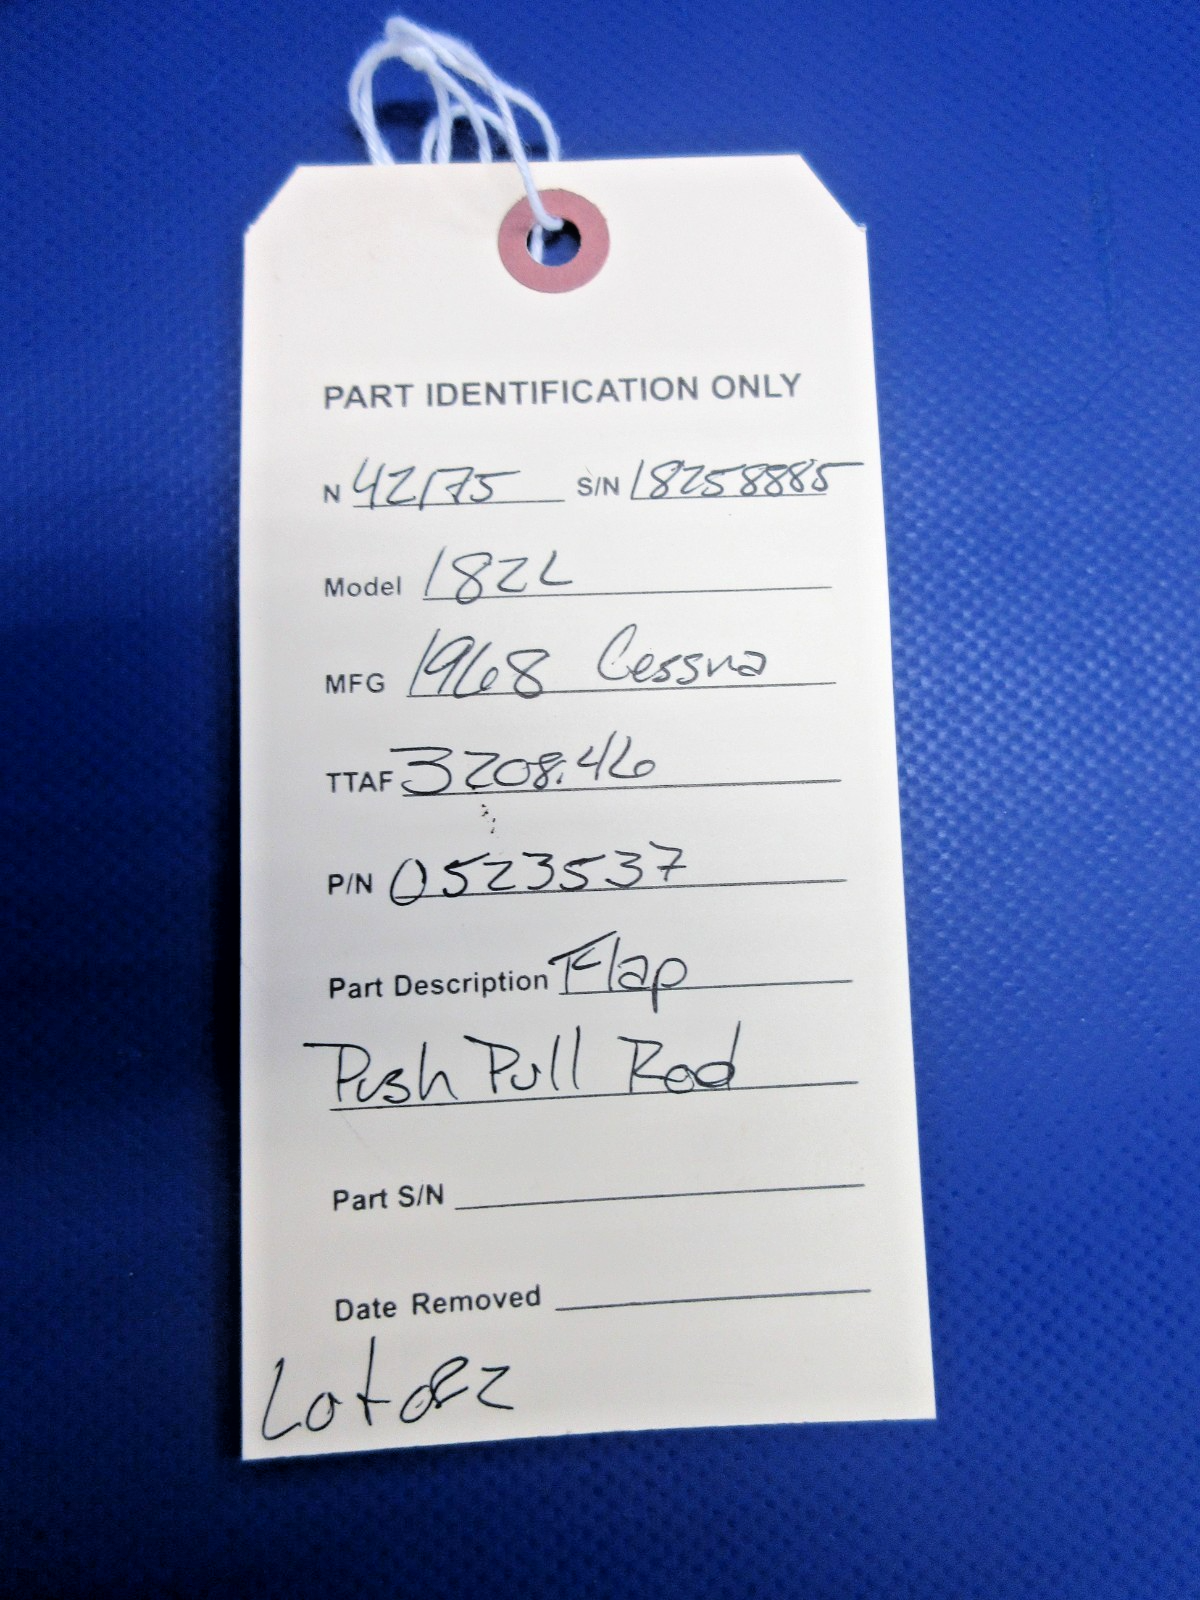 PART IDENTIFICATION ONLY
N 42175 S/N 18258885
Model 182L
MFG 1968 Cessna
TTAF 3208.46
P/N 0523537
Part Description Flap
Push Pull Rod
Part S/N
Date Removed
Lot 082